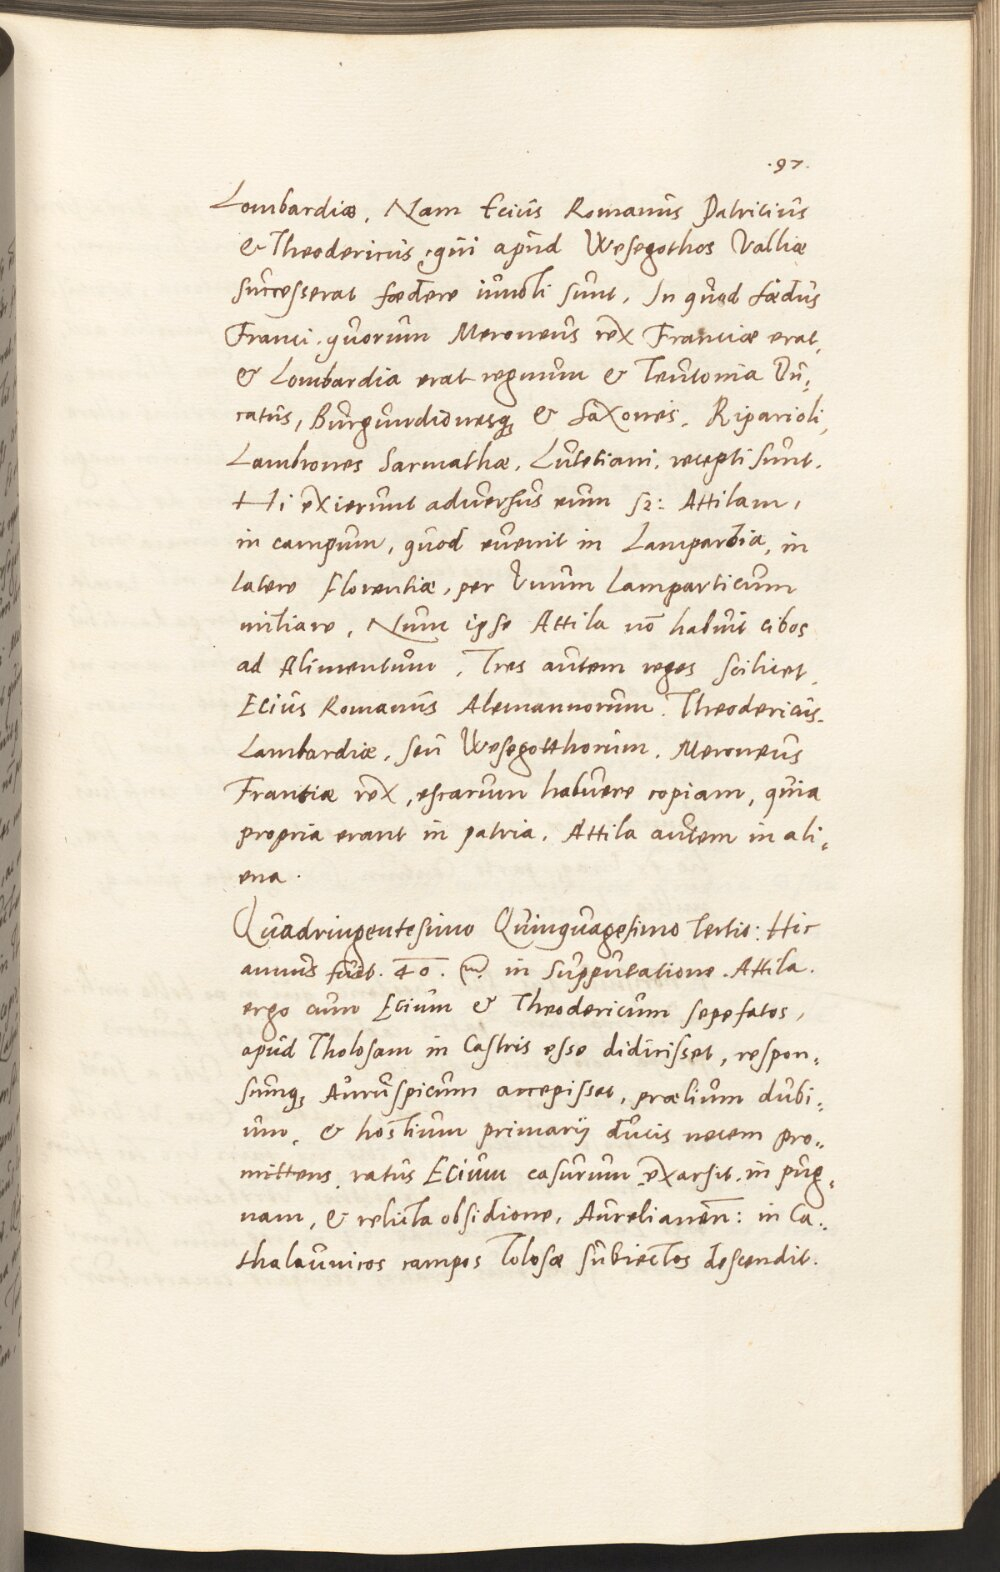 .97.
Lombardiæ. Nam Ecius Romanus Patritius
& Theodericus, qui apud Wesegothos Valliæ
successerat fœdere iuncti sunt. In quod fœdus
Franci, quorum Meroneus rex Franciæ erat,
& Lombardia erat regnum & Teutonia Du-
catus, Burgundionesq; & Saxones. Riparioli,
Lambrones Sarmathæ. Lutetiani, recepti sunt.
Hi exierunt adversus eum sz: Attilam,
in campum, quod evenit in Lampardia, in
latere Florentiæ, per Unum Lamparticum
miliare. Nunc ipse Attila nō habuit cibos
ad Alimentum. Tres autem reges scilicet,
Ecius Romanus Alemannorum. Theodericus
Lambardiæ, seu Wesegotthorum. Meroneus
Frantiæ rex, escarum habuere copiam, quia
propria erant in patria. Attila autem in ali-
ena.
Quadringentesimo Quinquagesimo tertio: Hic
annus fuit. 40. in Supputatione. Attila.
ergo cum Ecium & Theodericum sepefatos,
apud Tholosam in Castris esse didicisset, respon-
sumq; Auruspicum accepisset, prælium dubi-
um, & hostium primarij ducis necem pro-
mittens, ratus Ecium casurum, exarsit in pug-
nam, & relicta obsidione, Aurelianeñ: in Ca-
thalaunicos campos Tolosæ subiectos descendit.